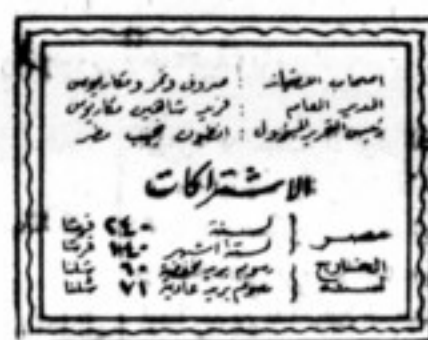 اصحاب الامتياز : صروف ونمر ومكاريوس
المدير العام : فريد شاهين مكاريوس
رئيس التحرير المسؤول : انطون نجيب مطر
الاشتراكات
مصر { لسنة ٢٤٠ قرشا
لستة اشهر ١٤٠ قرشا
الخارج لسنة { رسوم بريد مخفضة ٦٠ شلنا
رسوم بريد عادية ٧٢ شلنا